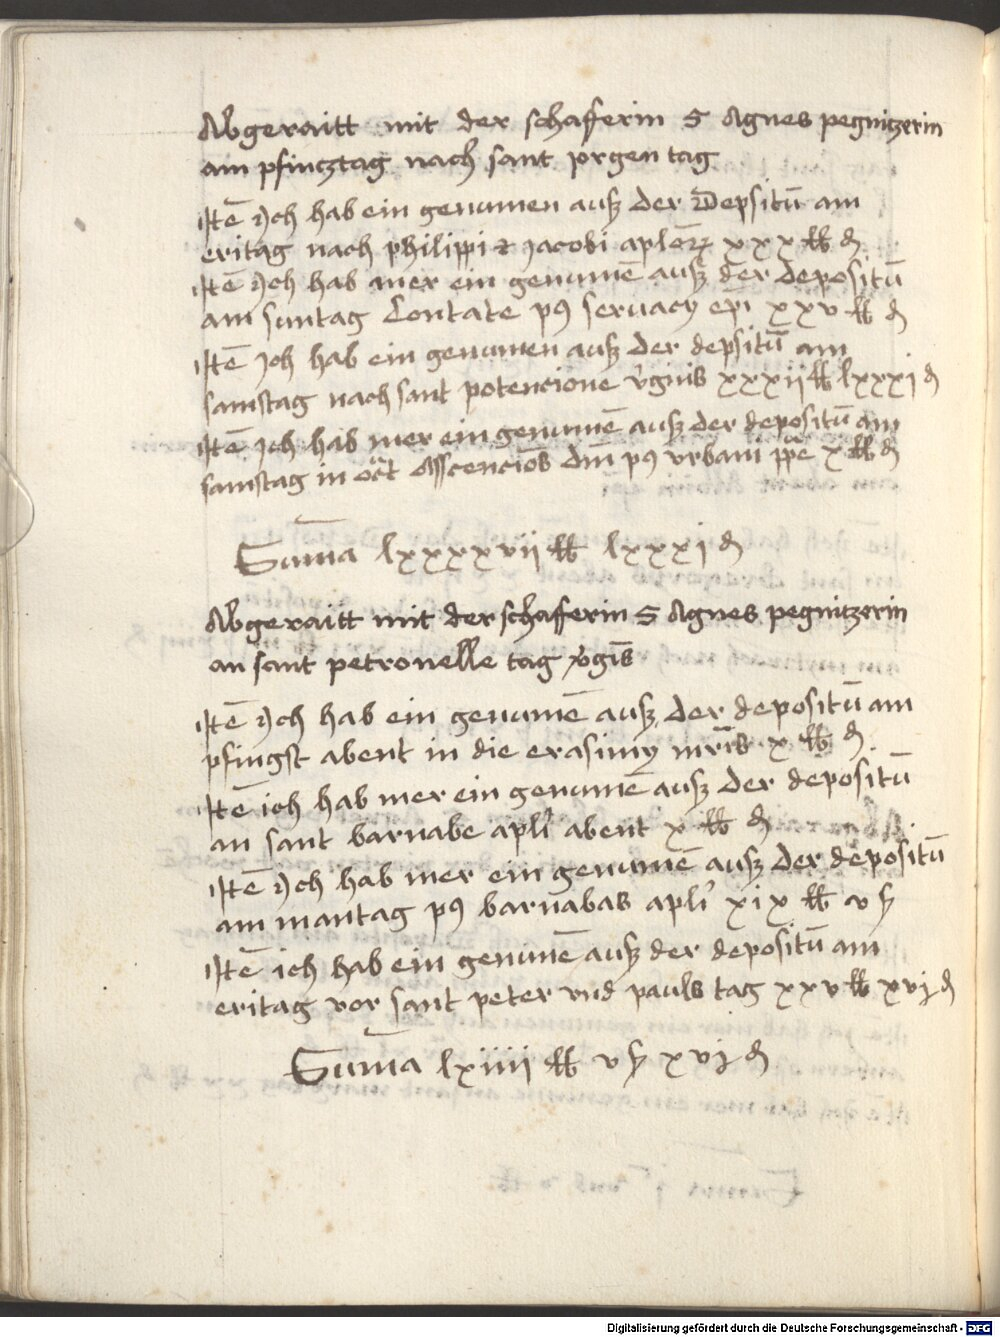 Abgeraitt mit der schafferin S Agnes pegnitzerin
am pfincztag nach sant jorgen tag
Itē Ich hab ein genumen ausz der Depsitū am
eritag nach philippi et jacobi aplōrꝝ xxx ℔ ₰
Itē Ich hab mer ein genumē ausz der depositū
am suntag Contate pꝰ seruacy epi xxv ℔ ₰
Itē Ich hab ein genumen ausz der depsitū am
samstag nach sant potencione v'ginis xxxij ℔ lxxxj ₰
Itē Ich hab mer ein genumē ausz der depositū am
samstag in oct Asscencioıs dm̄ pꝰ vrbani ppe x ℔ ₰
Suma lxxxxvij ℔ lxxxj ₰
Abgeraitt mit der schafferin S Agnes pegnitzerin
an sant petronelle tag v'gīs
Itē Ich hab ein genumē ausz der depositū am
pfingst abent in die erasimy mrīs x ℔ ₰
Itē ich hab mer ein genumē ausz der depositū
an sant barnabe apli abent x ℔ ₰
Itē Ich hab mer ein genumē ausz der depositū
am mantag pꝰ barnabas apli xix ℔ v ß
Itē ich hab ein genumē ausz der depositū am
eritag vor sant peter vnd pauls tag xxv ℔ xvj ₰
Suma lxiiij ℔ v ß xvj ₰
Digitalisierung gefördert durch die Deutsche Forschungsgemeinschaft - DFG